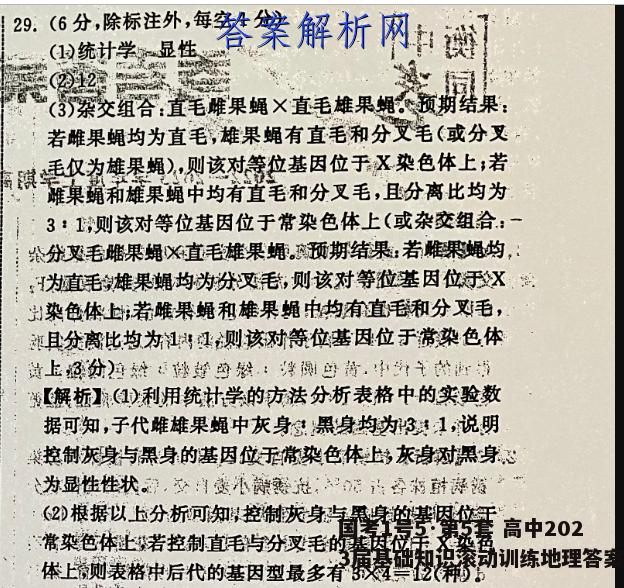 29. (6分,除标注外,每空1分)
答案解析网
(1)统计学 显性
(2)12
(3)杂交组合:直毛雌果蝇×直毛雄果蝇。预期结果:
若雌果蝇均为直毛,雄果蝇有直毛和分叉毛(或分叉
毛仅为雄果蝇),则该对等位基因位于X染色体上;若
雌果蝇和雄果蝇中均有直毛和分叉毛,且分离比均为
3∶1,则该对等位基因位于常染色体上(或杂交组合:
分叉毛雌果蝇×直毛雄果蝇。预期结果:若雌果蝇均
为直毛,雄果蝇均为分叉毛,则该对等位基因位于X
染色体上;若雌果蝇和雄果蝇中均有直毛和分叉毛,
且分离比均为1∶1,则该对等位基因位于常染色体
上,3分)
【解析】(1)利用统计学的方法分析表格中的实验数
据可知,子代雌雄果蝇中灰身∶黑身均为3∶1,说明
控制灰身与黑身的基因位于常染色体上,灰身对黑身
为显性性状。
(2)根据以上分析可知,控制灰身与黑身的基因位于
常染色体上,若控制直毛与分叉毛的基因位于X染色
体上,则表格中后代的基因型最多有3×4=12(种);
国考1号5·第5套 高中202
3届基础知识滚动训练地理答案